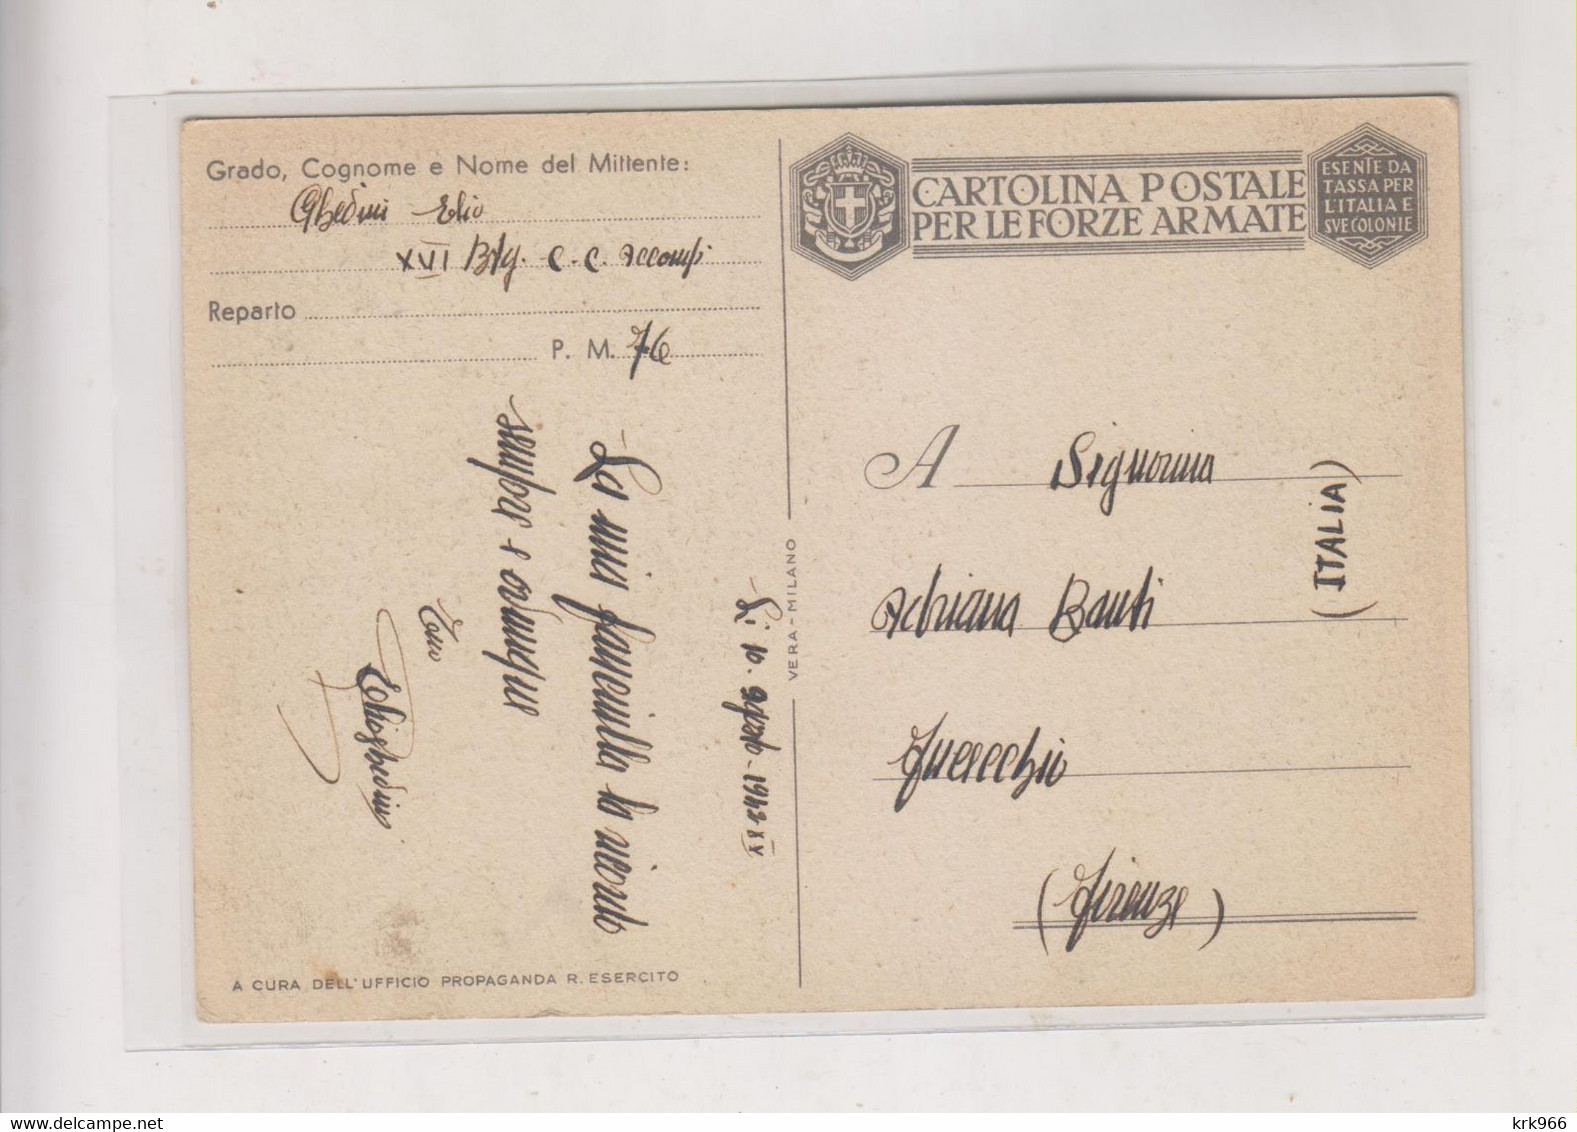 Grado, Cognome e Nome del Mittente:
Ghedini Elio
XVI Btg. C.C. Accomp
Reparto
P. M. 76
Li 10 Agosto - 1942 XX
La mia fanciulla la ricordo
sempre e ovunque
Tuo
Elioghedini
A CURA DELL'UFFICIO PROPAGANDA R. ESERCITO
VERA - MILANO
CARTOLINA POSTALE
PER LE FORZE ARMATE
ESENTE DA
TASSA PER
L'ITALIA E
SVE COLONIE
A Signorina
Adriana Banti
(ITALIA)
Fucecchio
(Firenze)
krk966